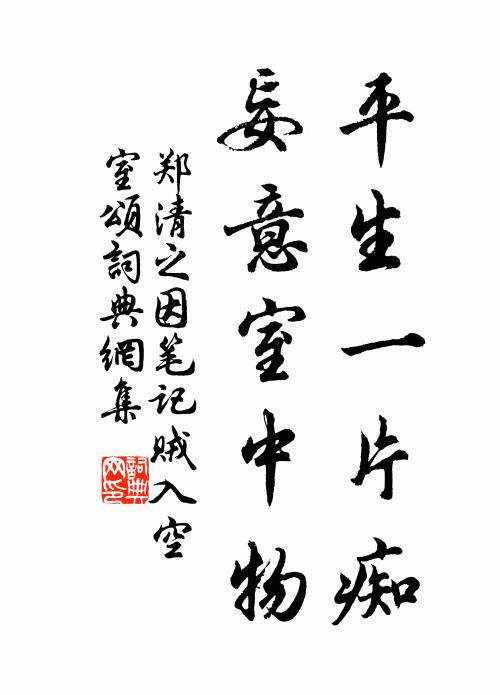 平生一片痴
妄意室中物
郑清之因笔记贼入空
室頌詞典網集
詞典
网印